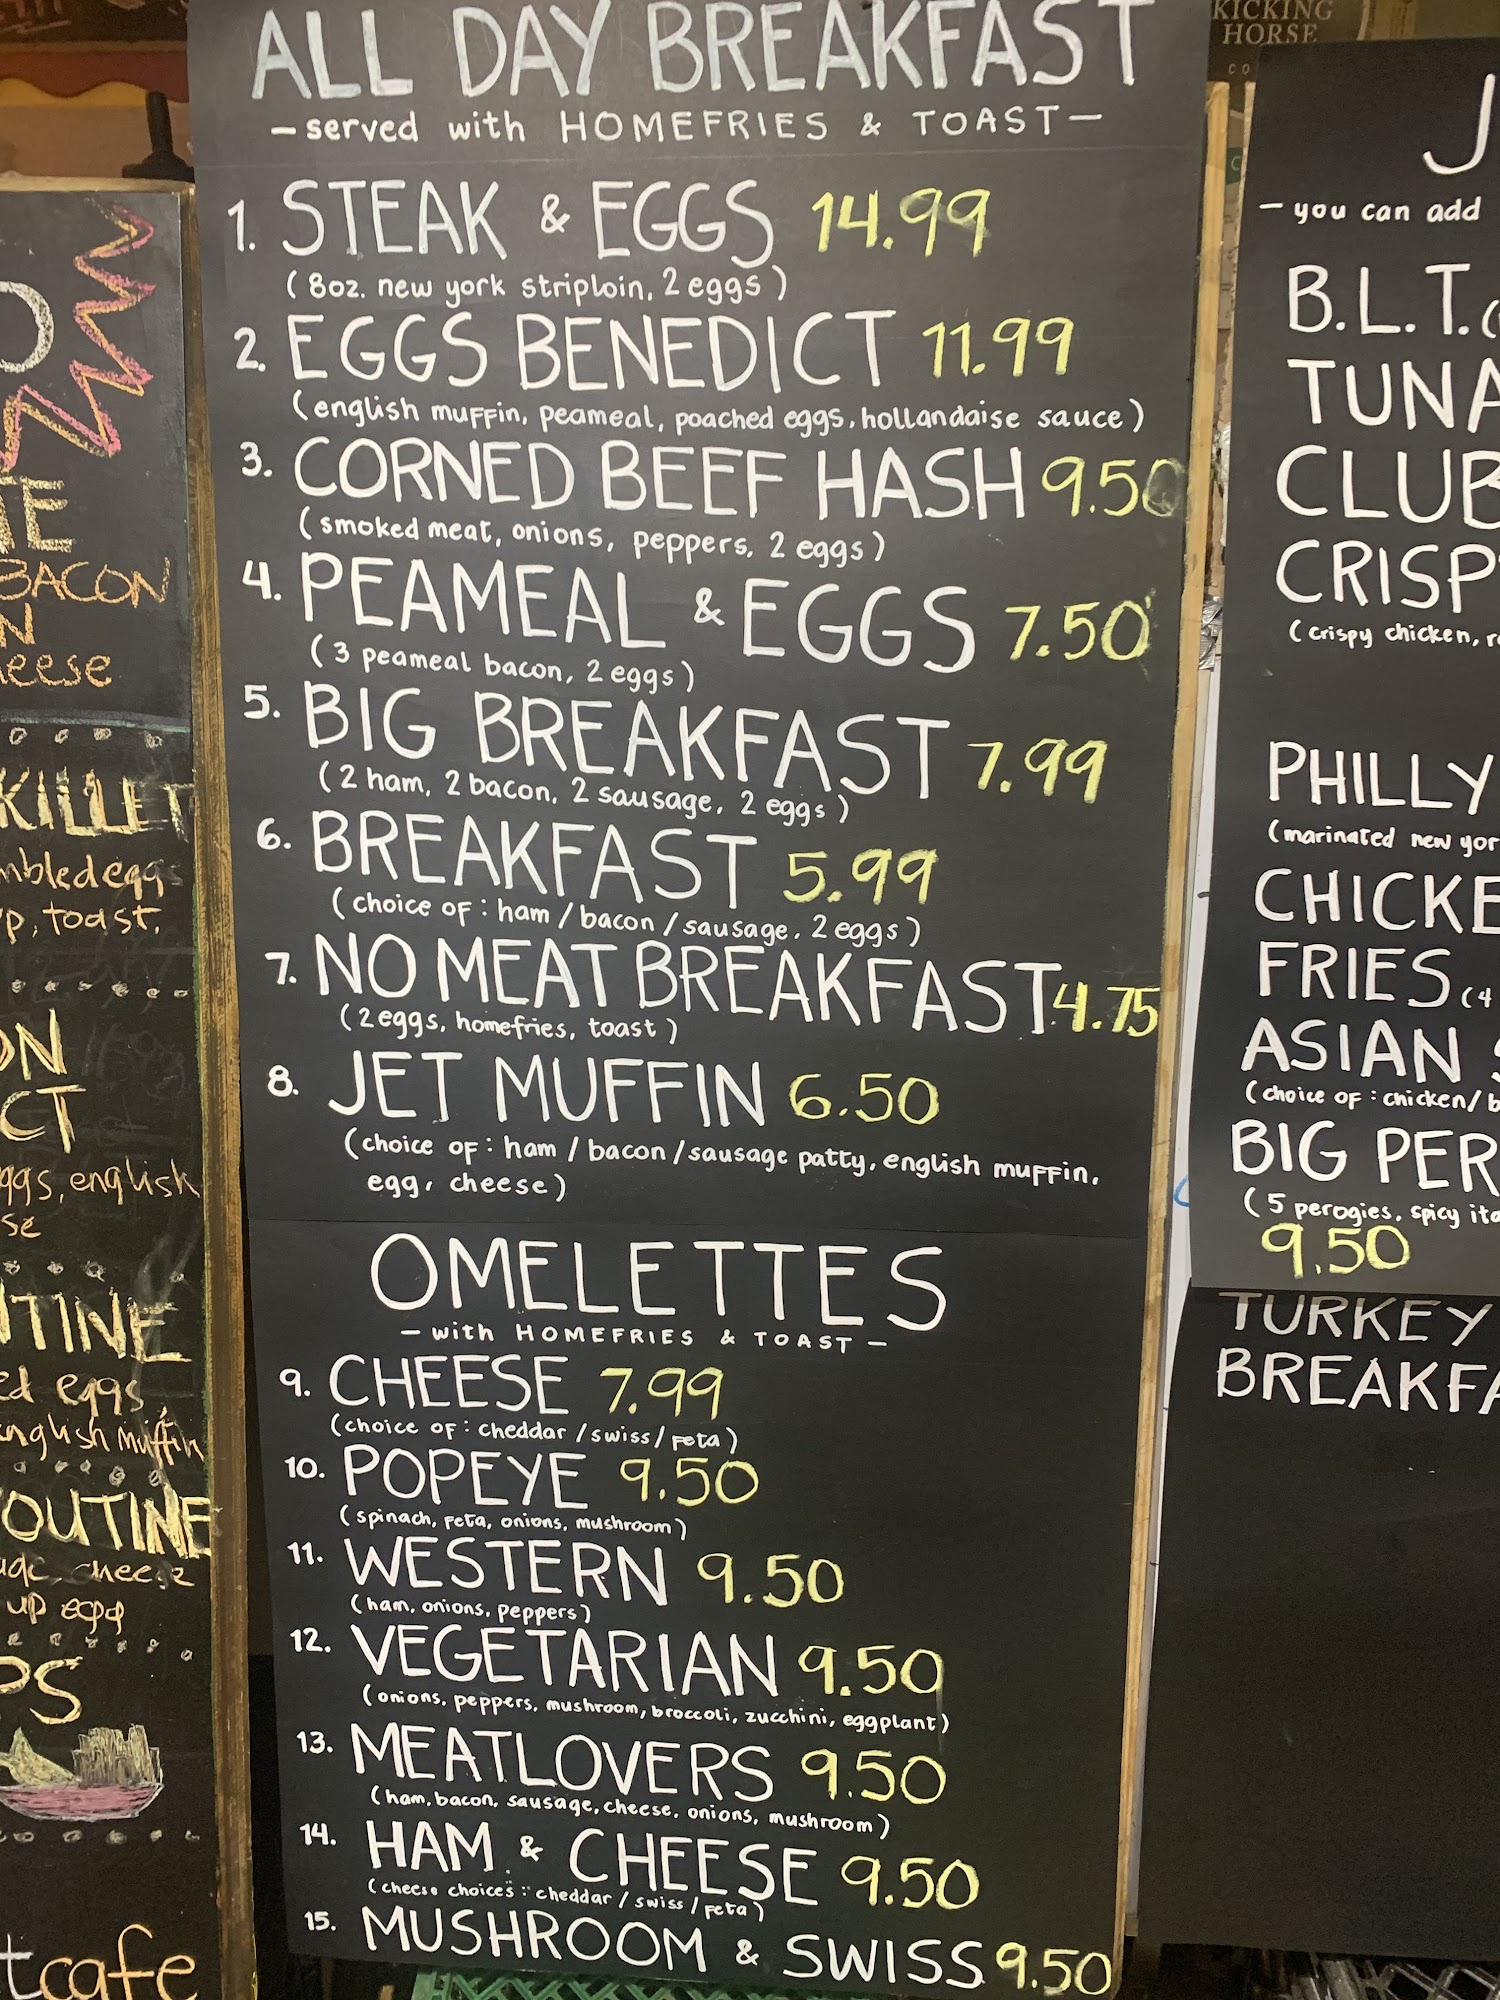 KICKING
HORSE
CO
ALL DAY BREAKFAST
- served with HOMEFRIES & TOAST -
1. STEAK & EGGS 14.99
(8oz. new york striploin, 2 eggs)
2. EGGS BENEDICT 11.99
(english muffin, peameal, poached eggs, hollandaise sauce)
3. CORNED BEEF HASH 9.50
(smoked meat, onions, peppers, 2 eggs)
4. PEAMEAL & EGGS 7.50
(3 peameal bacon, 2 eggs)
5. BIG BREAKFAST 7.99
(2 ham, 2 bacon, 2 sausage, 2 eggs)
6. BREAKFAST 5.99
(choice of: ham / bacon / sausage, 2 eggs)
7. NO MEAT BREAKFAST 4.75
(2 eggs, homefries, toast)
8. JET MUFFIN 6.50
(choice of: ham / bacon / sausage patty, english muffin,
egg, cheese)
OMELETTES
- with HOMEFRIES & TOAST -
9. CHEESE 7.99
(choice of: cheddar / swiss / feta)
10. POPEYE 9.50
(spinach, feta, onions, mushroom)
11. WESTERN 9.50
(ham, onions, peppers)
12. VEGETARIAN 9.50
(onions, peppers, mushroom, broccoli, zucchini, eggplant)
13. MEATLOVERS 9.50
(ham, bacon, sausage, cheese, onions, mushroom)
14. HAM & CHEESE 9.50
(cheese choices: cheddar / swiss / feta)
15. MUSHROOM & SWISS 9.50
BACON
eese
KILLET
mbled egg
p, toast.
ON
CT
ggs, english
se
TINE
ed eggs,
english muffin
OUTINE
cheese
up egg
PS
tcafe
J
- you can add
B.L.T. (
TUNA
CLUB
CRISP
(crispy chicken, r
PHILLY
(marinated new yor
CHICKE
FRIES (4
ASIAN S
(choice of: chicken/ b
BIG PER
(5 perogies, spicy ita
9.50
TURKEY
BREAKFA